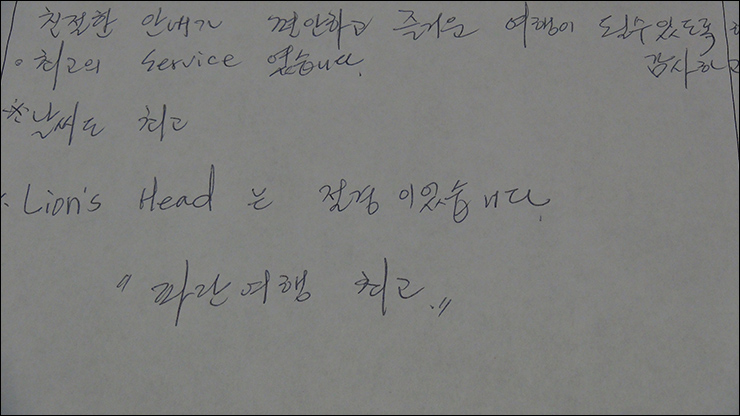 친절한 안내가 편안하고 즐거운 여행이 될수있도록
◦ 최고의 Service 였습니다. 감사하고
※ 날씨도 최고
Lion's Head 는 절경이었습니다.
"파란여행 최고."